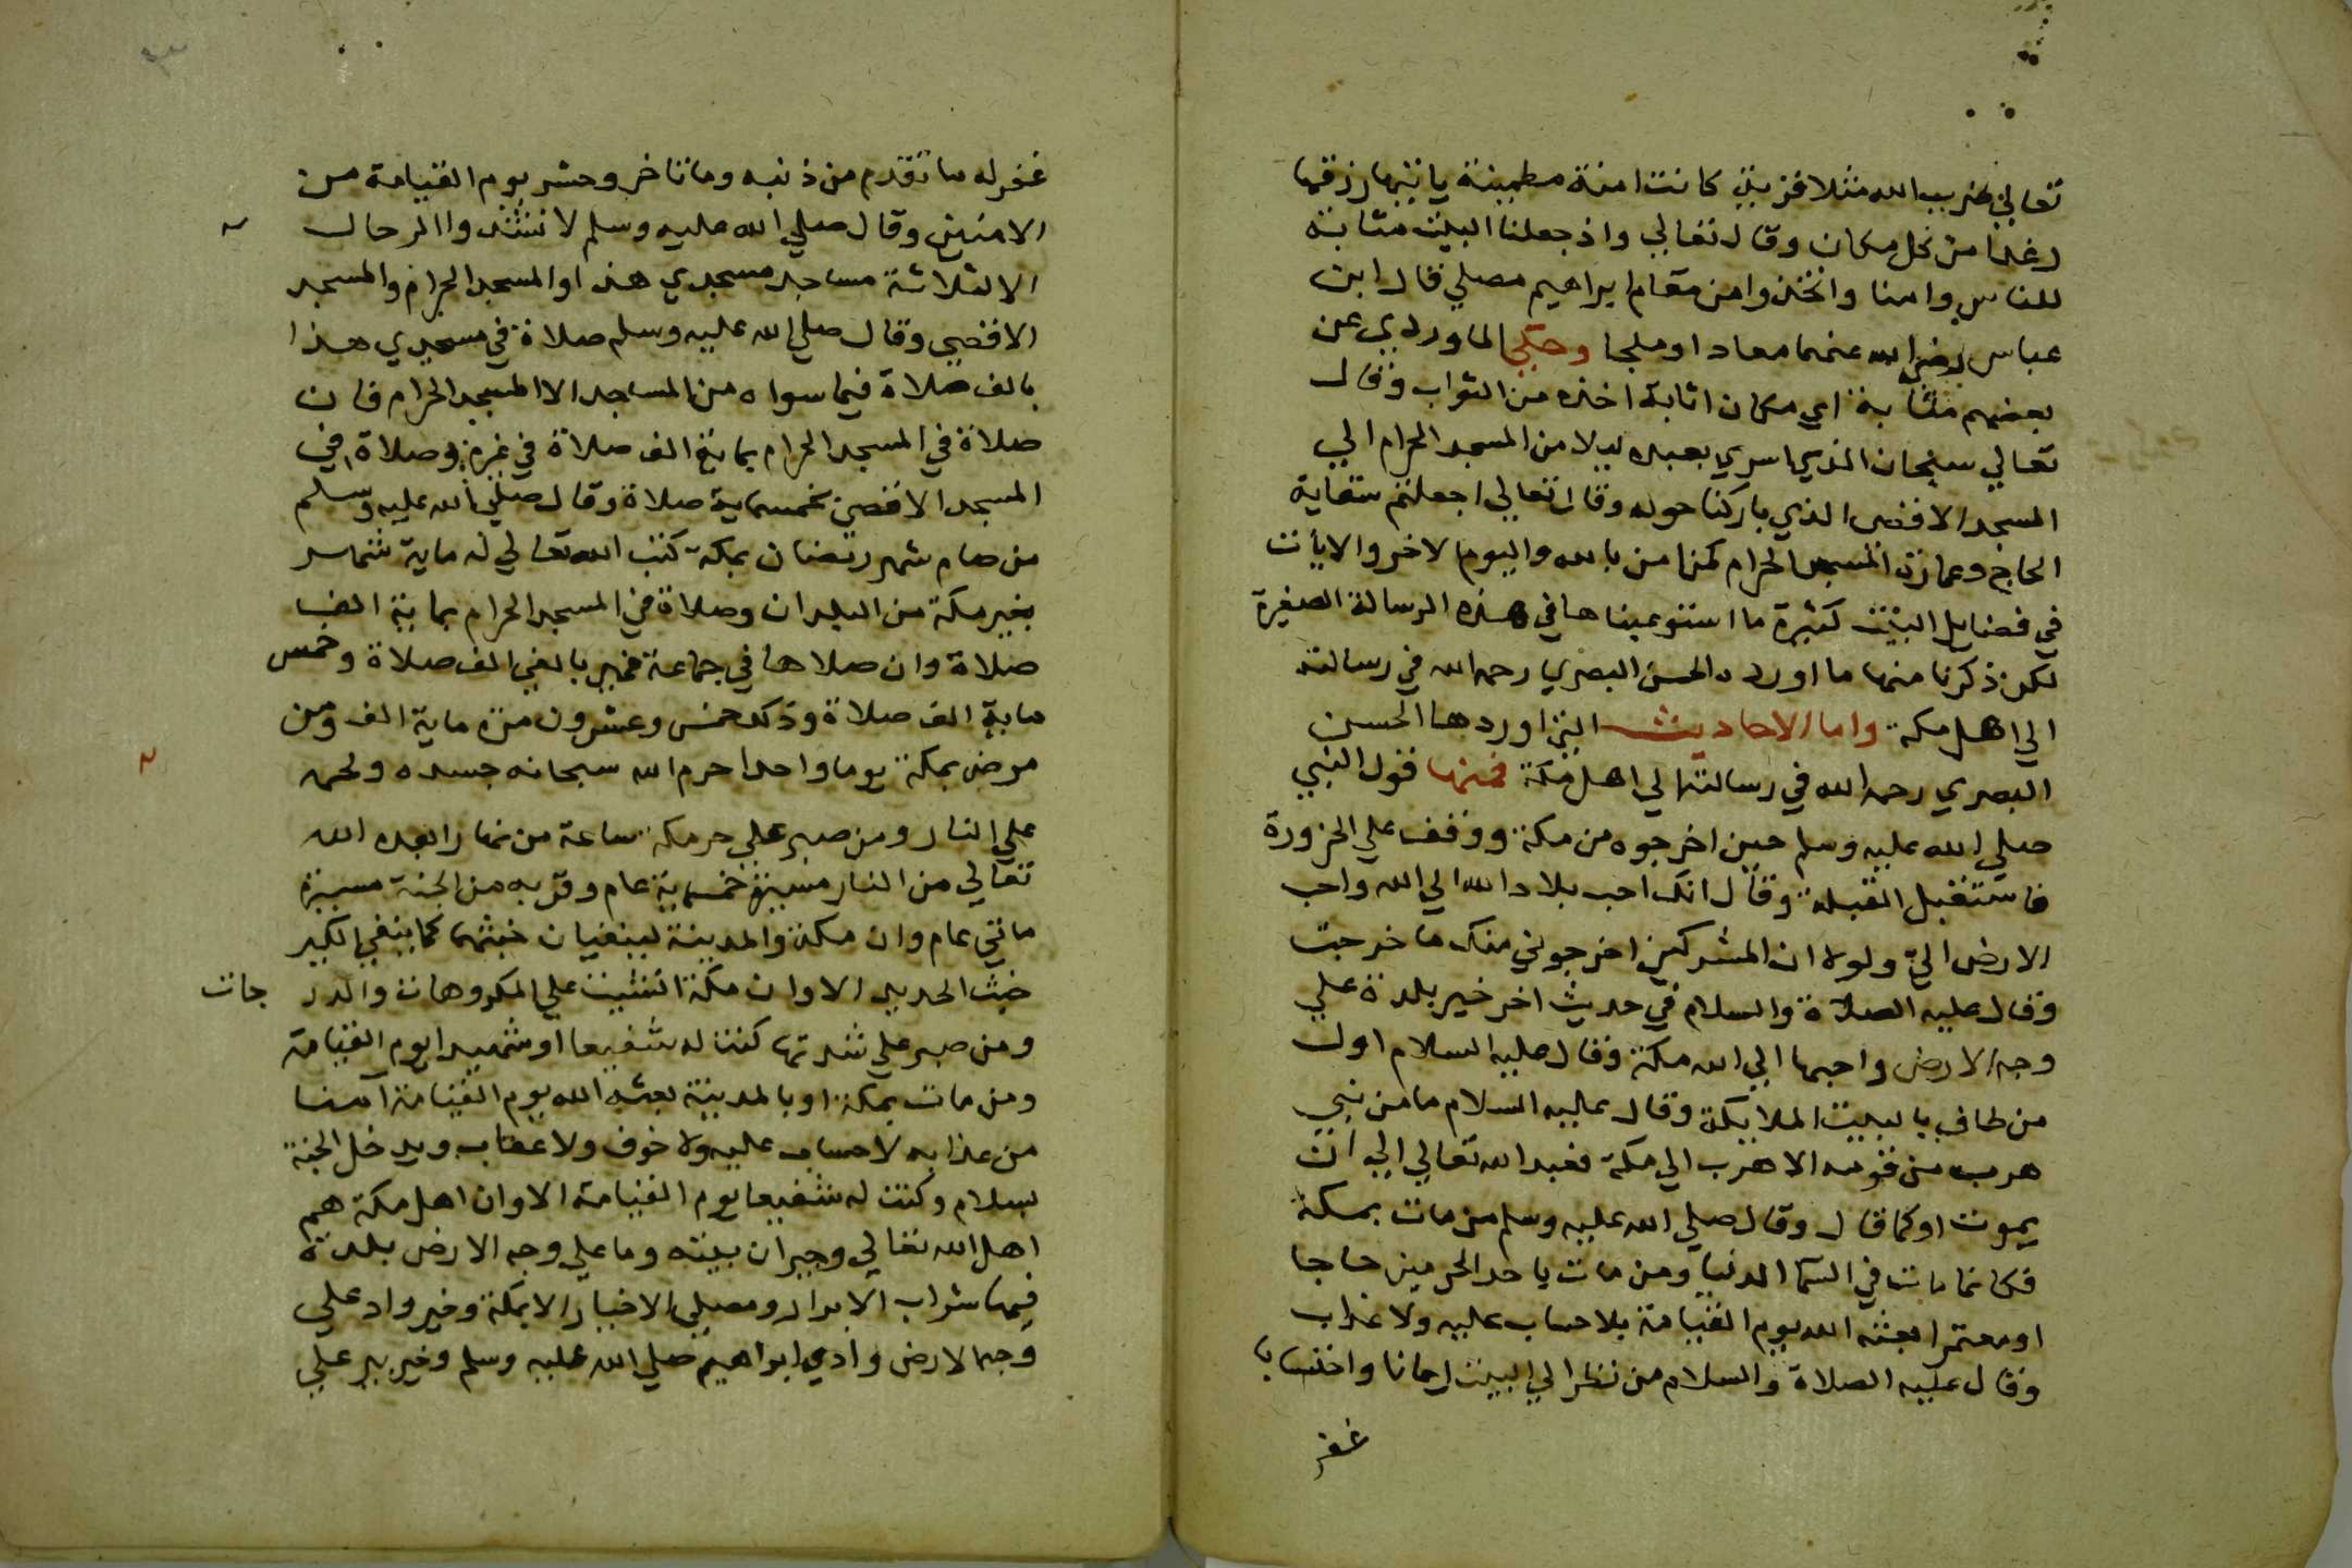 تعالي ضرب الله مثلا قرية كانت امنة مطمينة ياتيها رزقها
رغدا من كل مكان وقال تعالي واذ جعلنا البيت مثابة
للناس وامنا واتخذوا من مقام ابراهيم مصلي قال ابن
عباس رضي الله عنهما معادا او ملجا وحكي الماوردي عن
بعضهم مثابة اي مكان اثابة اخذه من الثواب وقال
تعالي سبحان الذي اسري بعبده ليلا من المسجد الحرام الي
المسجد الاقصي الذي باركنا حوله وقال تعالي اجعلتم سقاية
الحاج وعمارة المسجد الحرام كمن امن بالله واليوم الاخر والايات
في فضايل البيت كثيرة ما استوعيناها في هذه الرسالة الصغيرة
لكن ذكرنا منها ما اورده الحسن البصري رحمه الله في رسالته
الي اهل مكة واما الاحاديث التي اوردها الحسن
البصري رحمه الله في رسالته الي اهل مكة فمنها قول النبي
صلي الله عليه وسلم حين اخرجوه من مكة ووقف علي الحزورة
فاستقبل القبلة وقال انك احب بلاد الله الي الله واحب
الارض الي ولولا ان المشركين اخرجوني منك ما خرجت
وقال عليه الصلاة والسلام في حديث اخر خير بلدة علي
وجه الارض واحبها الي الله مكة وقال عليه السلام اول
من طاف بالبيت الملايكة وقال عليه السلام ما من نبي
هرب من قومه الا هرب الي مكة فعبد الله تعالي الي ان
يموت او كما قال وقال صلي الله عليه وسلم من مات بمكة
فكانما مات في السما الدنيا ومن مات باحد الحرمين حاجا
او معتمرا بعثه الله يوم القيامة بلا حساب عليه ولا عذاب
وقال عليه الصلاة والسلام من نظر الي البيت ايمانا واحتسابا
غفر
غفر له ما تقدم من ذنبه وما تاخر وحشر يوم القيامة من
الامنين وقال صلي الله عليه وسلم لا تشدوا الرحال
الا لثلاثة مساجد مسجدي هذا والمسجد الحرام والمسجد
الاقصي وقال صلي الله عليه وسلم صلاة في مسجدي هذا
بالف صلاة فيما سواه من المساجد الا المسجد الحرام فان
صلاة في المسجد الحرام بماية الف صلاة في غيره وصلاة في
المسجد الاقصي بخمسماية صلاة وقال صلي الله عليه وسلم
من صام شهر رمضان بمكة كتب الله تعالي له ماية شهر
بغير مكة من البلدان وصلاة في المسجد الحرام بماية الف
صلاة وان صلاها في جماعة فهي بالفي الف صلاة وخمس
ماية الف صلاة وذلك خمس وعشرون مرة ماية الف ومن
مرض بمكة يوما واحدا حرم الله سبحانه جسده ولحمه
علي النار ومن صبر علي حر مكة ساعة من نهار ابعده الله
تعالي من النار مسيرة خمسماية عام وقربه من الجنة مسيرة
ماتي عام وان مكة والمدينة لينفيان خبثهما كما ينفي الكير
خبث الحديد الا وان مكة انشيت علي المكروهات والدرجات
ومن صبر علي شدتها كنت له شفيعا او شهيدا يوم القيامة
ومن مات بمكة او بالمدينة بعثه الله يوم القيامة آمنا
من عذابه لا حساب عليه ولا خوف ولا عقاب ويدخل الجنة
بسلام وكنت له شفيعا يوم القيامة الا وان اهل مكة هم
اهل الله تعالي وجيران بيته وما علي وجه الارض بلدة
فيها شراب الابرار ومصلي الاخيار الا بمكة وخير واد علي
وجه الارض وادي ابراهيم صلي الله عليه وسلم وخير بير علي